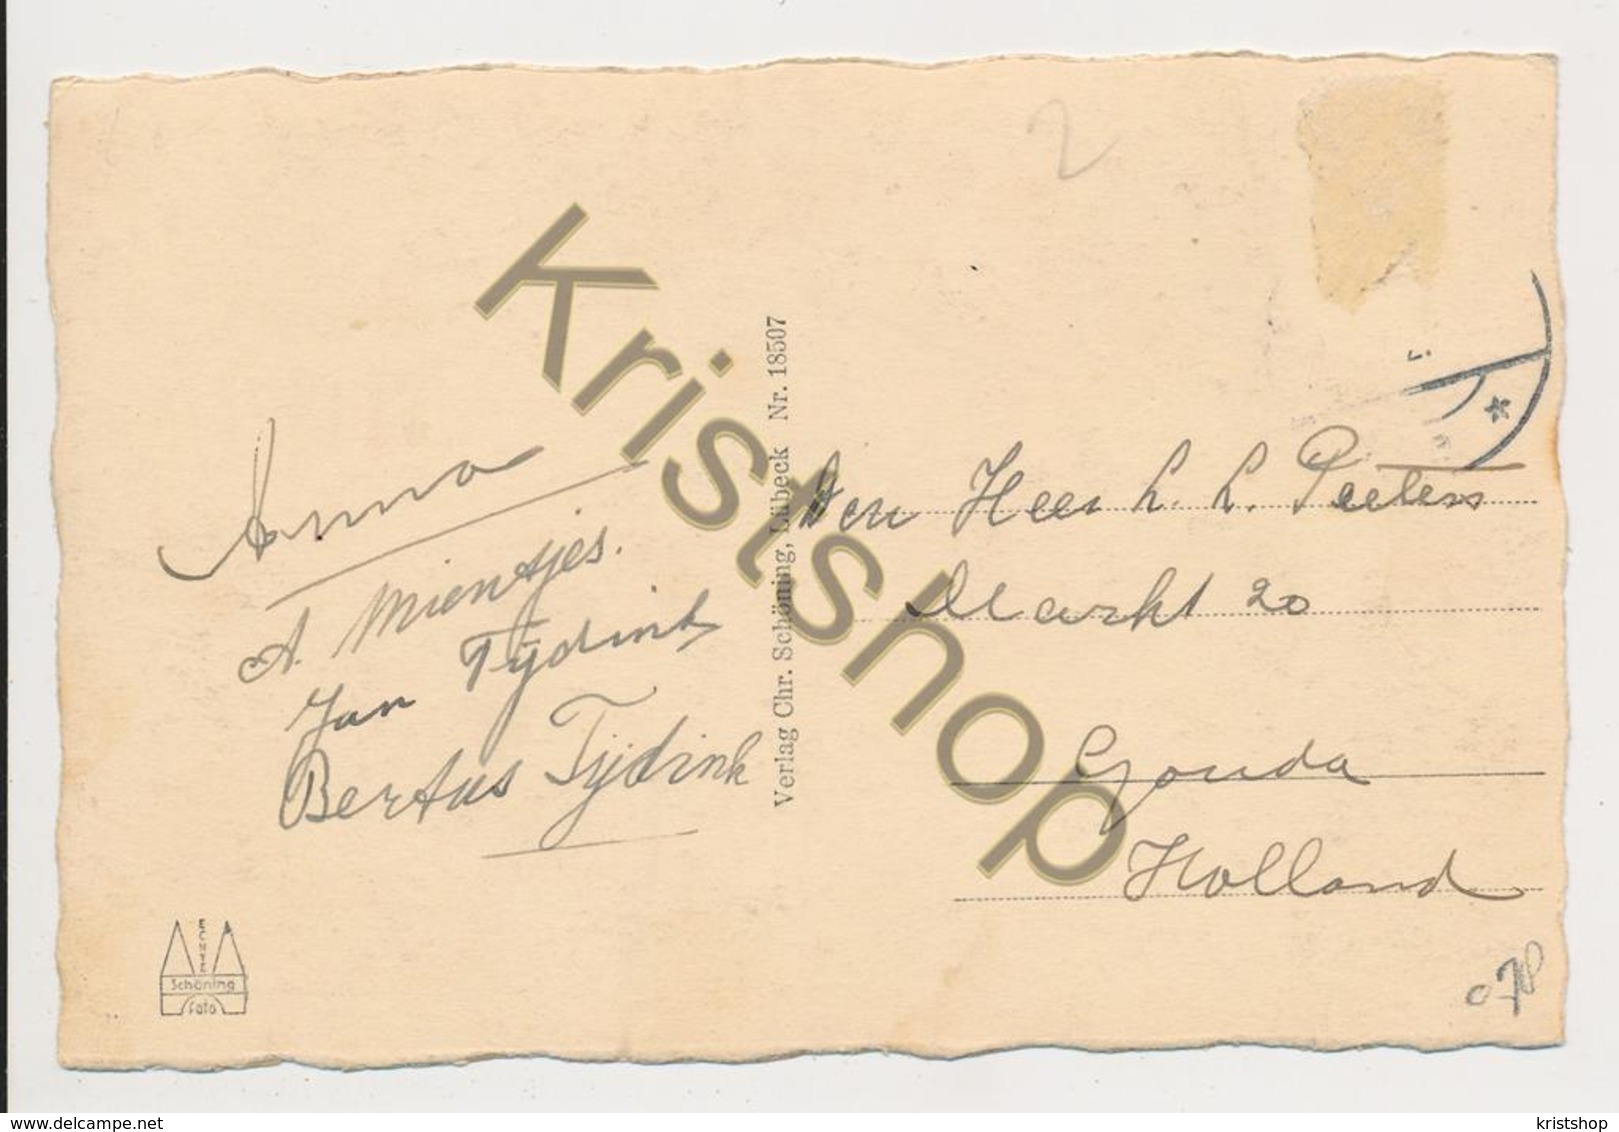 2
Anna
A. Mientjes.
Jan Tijdink
Bertus Tijdink
Verlag Chr. Schöning, Lübeck Nr. 18507
Den Heer L. L. Peeters
Markt 20
Gouda
Holland
ECHTE
Schöning
Foto
Kristshop
www.delcampe.net
kristshop